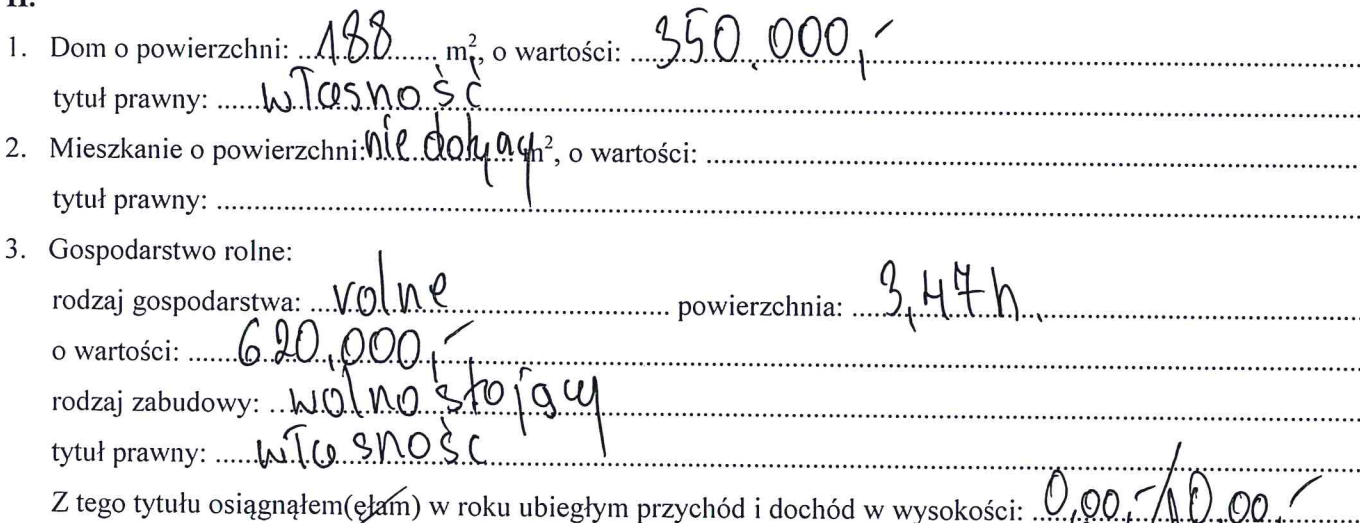 II.
1. Dom o powierzchni: 188 m², o wartości: 350.000,-
tytuł prawny: własność
2. Mieszkanie o powierzchni: nie dotyczy m², o wartości:
tytuł prawny:
3. Gospodarstwo rolne:
rodzaj gospodarstwa: rolne powierzchnia: 3,47 h.
o wartości: 620.000,-
rodzaj zabudowy: wolno stojący
tytuł prawny: własność
Z tego tytułu osiągnąłem(ęłam) w roku ubiegłym przychód i dochód w wysokości: 0,00,-/10.00,-